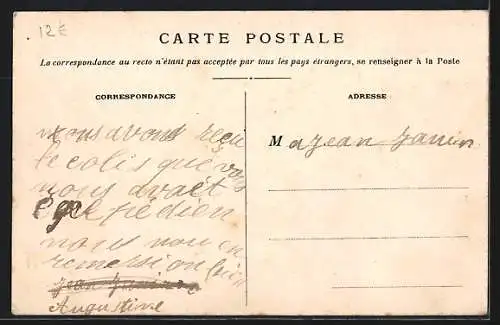 12€
CARTE POSTALE
La correspondance au recto n'étant pas acceptée par tous les pays étrangers, se renseigner à la Poste
CORRESPONDANCE
ADRESSE
nous avont reçu
le colis que vous
nous avaèt
pédien
nous nou en
remersion bien
Jean Janin
Augustine
M a Jean Janin